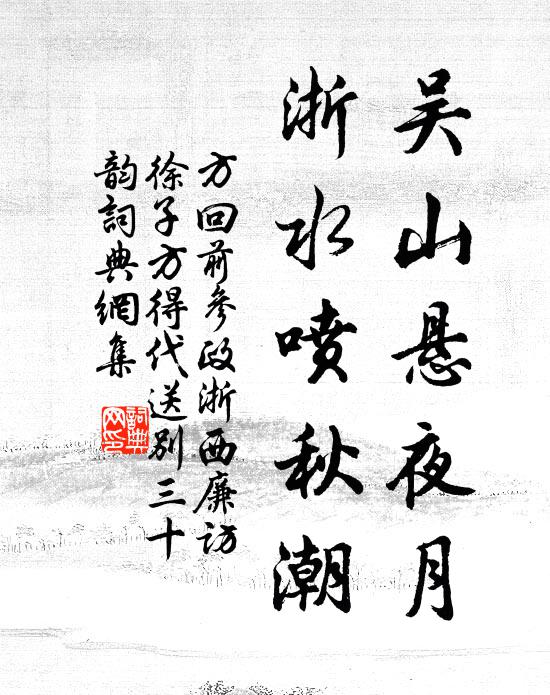 吴山悬夜月
浙水喷秋潮
方回前參政浙西廉访
徐子方得代送别三十
韵詞典網集
詞典网印